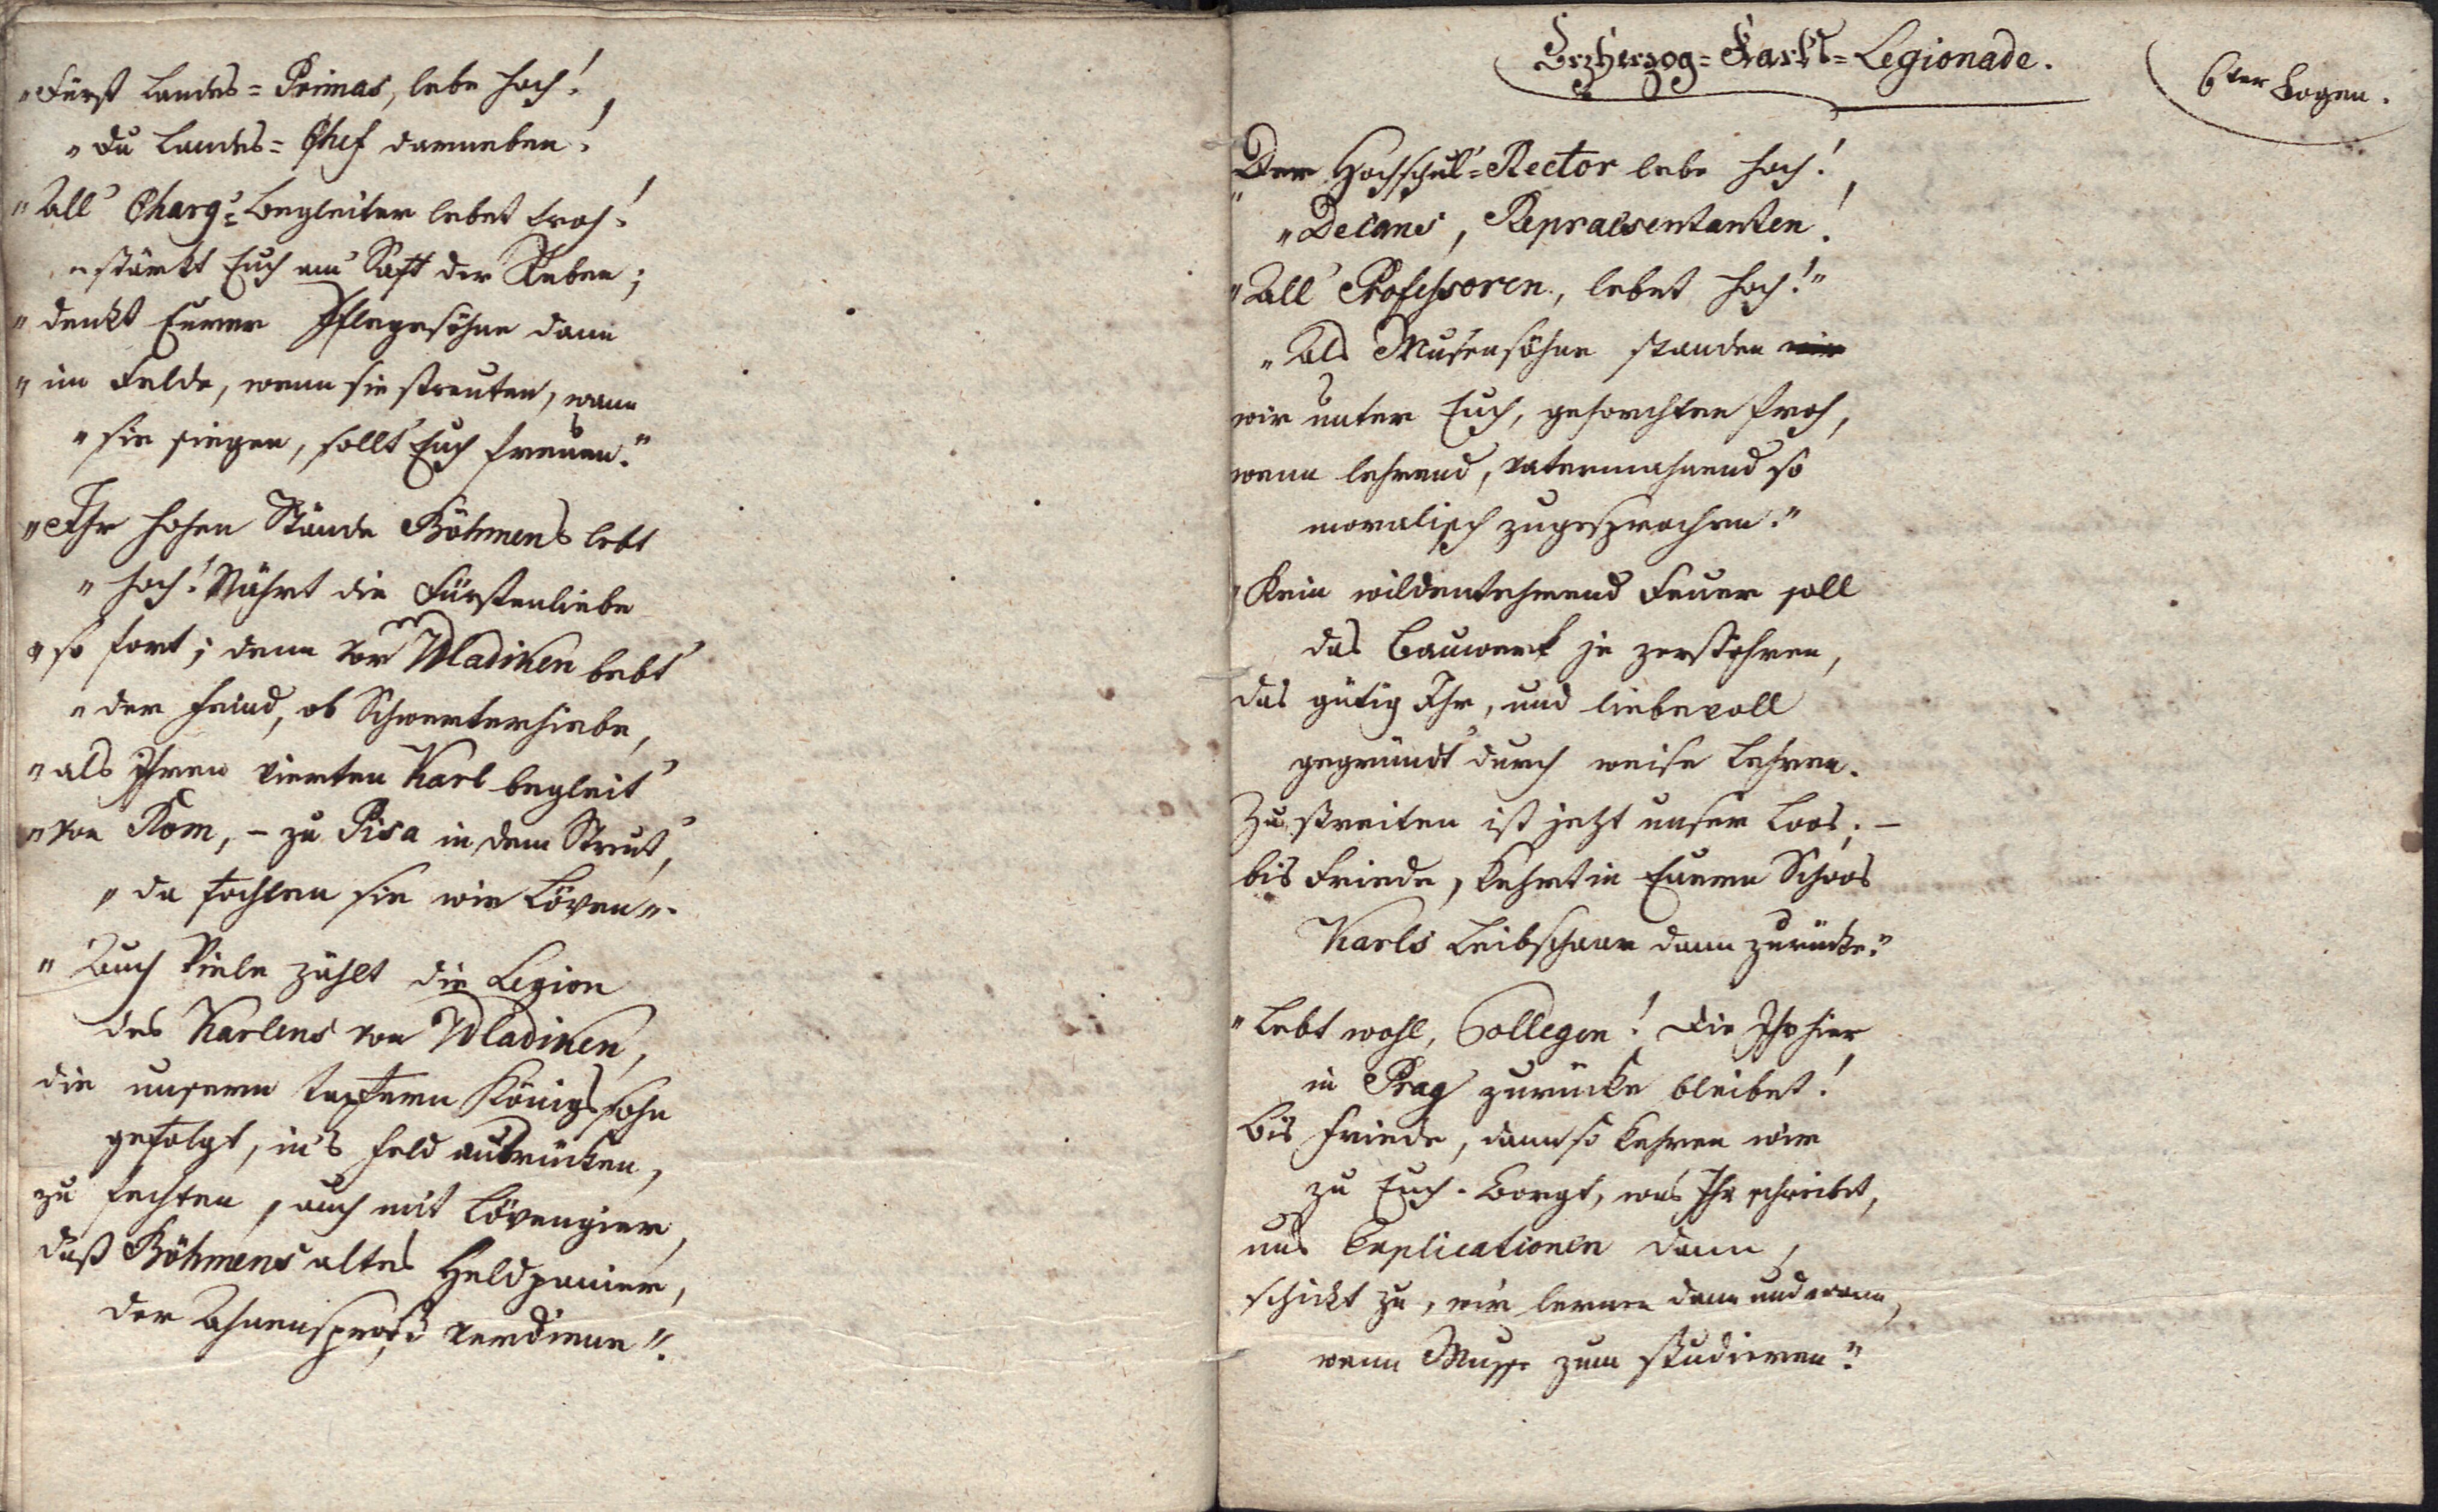 „Fürst Landes= Primas, lebe hoch!
„Du Landes= Chef darneben!
„All' Charg'= Begleiter lebet froh!
„stärkt Euch am Saft der Reben;
„denkt Eurer Pflegesöhne dann
„im Felde, wenn sie streuten, wann
„sie siegen, sollt' Euch freuen."
„Ihr hohen Stände Böhmens lebt
„hoch! Nährt die Fürstenliebe
„so fort; denn vor Wladiken bebt'
„der Feind, ob Schwerterhiebe,
„als Ihren vierten Karl begleit'
„von Rom, – zu Pisa in dem Streut',
„da fochten sie wie Löven".
„Auch Viele zählt die Legion
des Karlens von Wladiken,
die unserm tapfern Königssohn
gefolgt, in's Feld ausrücken,
zu fechten, auch mit Lövengier,
daß Böhmens altes Heldpanier,
der Ahnensproß verdiene".
Erzherzog= Karls= Legionade.
6ter Bogen.
„Der Hochschul'= Rector lebe hoch!
„Decans, Repraesentanten!
„All' Professoren, lebet hoch!"
„Als Musensöhne standen wir
wir unter Euch, gehorchten froh,
wenn lehrend, vatermahnend so
moralisch zugesprochen."
„Kein wildentzehrend Feuer soll
das Bauwerk je zerstöhren,
das gütig Ihr, und liebevoll
gegründt' durch weise Lehren.
Zu streiten ist jetzt unser Loos; –
bis Friede, kehrt in Euern Schoos
Karls Leibschaar dann zurücke."
„Lebt wohl, Collegen! Die Ihr hier
in Prag zurücke bleibet!
Bis Friede, dann so kehren wir
zu Euch. Borgt, was Ihr schreibet,
uns Explicationen dann,
schickt zu, wir lernen dann und wann,
wenn Musse zum studieren."